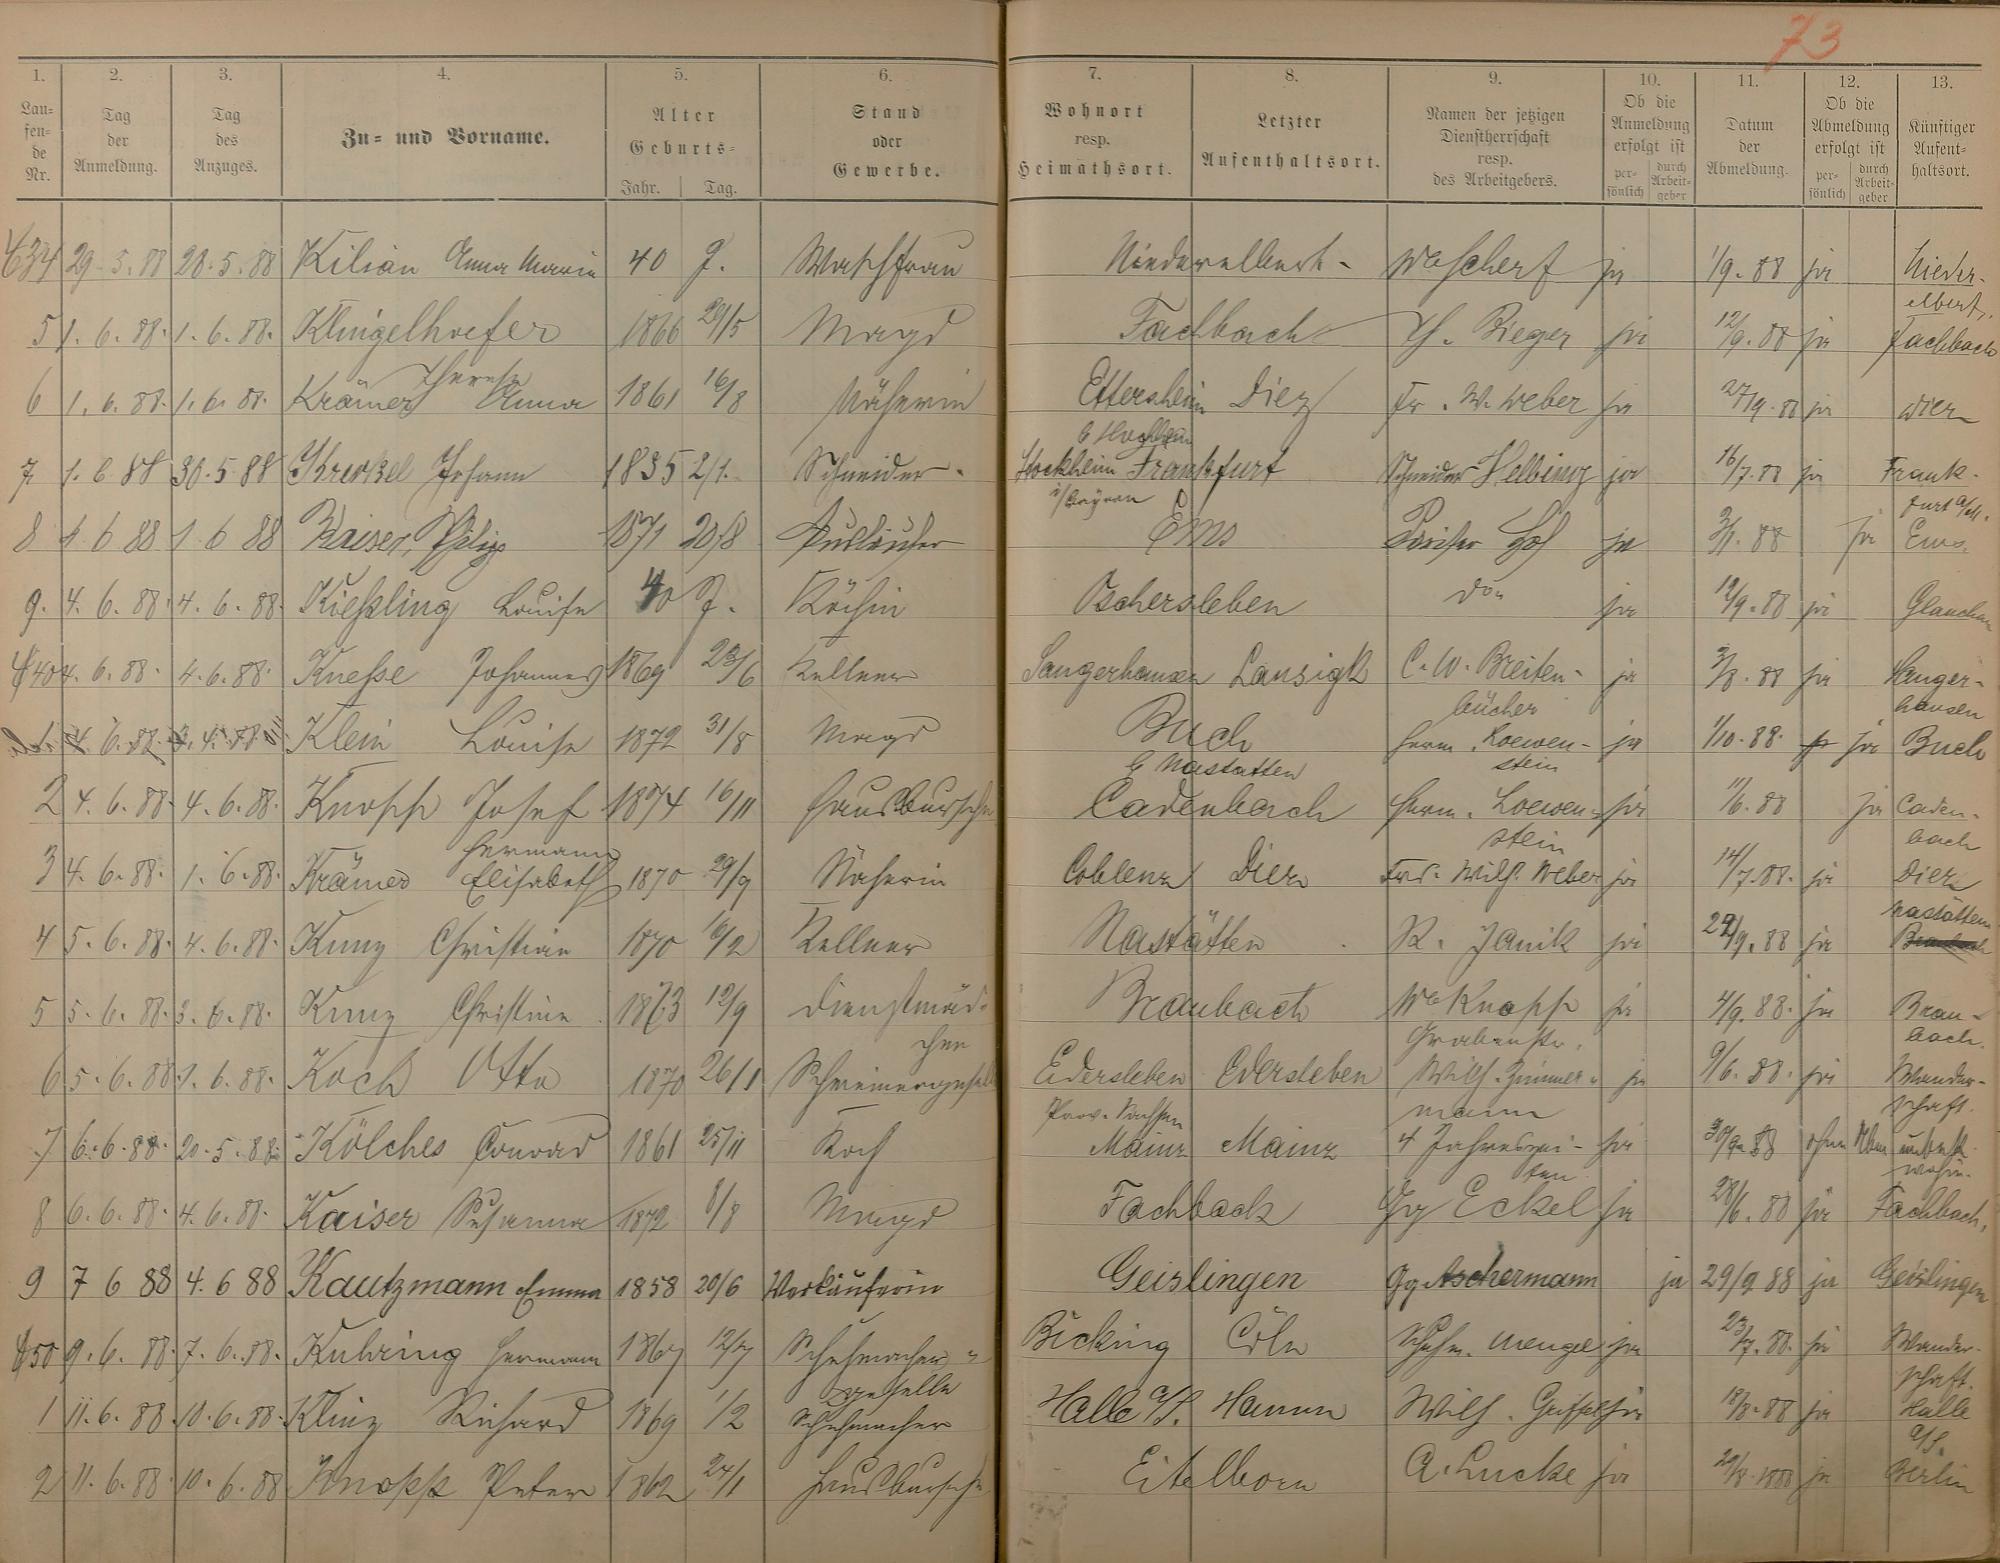 73
1. 2. 3. 4. 5. 6. 7. 8. 9. 10. 11. 12. 13.
Lau=fen=de Nr. Tag der Anmeldung. Tag des Anzuges. Zu= und Vorname. Alter Geburts= Jahr. Tag. Stand oder Gewerbe. Wohnort resp. Heimathsort. Letzter Aufenthaltsort. Namen der jetzigen Dienstherrschaft resp. des Arbeitgebers. Ob die Anmeldung erfolgt ist per=sönlich durch Arbeit=geber Datum der Abmeldung. Ob die Abmeldung erfolgt ist per=sönlich durch Arbeit=geber Künftiger Aufent=haltsort.
434 29.5.88 28.5.88 Kilian Anna Maria 40 J. Waschfrau Niederelbert - Scherf ja 1/9.88 ja Nieder-
elbert.
5 1.6.88. 1.6.88. Klingelhoefer 1866 29/5 Magd Fachbach Th. Rieger ja 12/9.88 ja Fachbach
Therese
6 1.6.88. 1.6.88. Krämer Anna 1861 16/8 Näherin Ettersheim Diez Fr. W. Weber ja 27/9.88 ja Diez
b Hochheim
7 1.6.88 30.5.88 Johann 1835 2/1. Schneider. Stockheim Frankfurt Schneider Helbing ja 16/7.88 ja Frank-
i/Bayern furt a/M.
8 1 6 88 1 6 88 Kaiser, Philip 1871 20/8 Ausläufer Ems Pariser Hof ja 3/1.88 ja Ems.
9. 4.6.88. 4.6.88. Kießling Louise 40 J. Köchin Oschersleben do ja 12/9.88 ja Glauchau
440 4.6.88. 4.6.88. Kneße Johannes 1869 23/6 Kellner Sangerhausen Lausigk C. W. Breiten- ja 3/8.88 ja Sanger-
bücher hausen
1. 4.6.88. Klein Louise 1872 31/8 Magd Buch Herm. Loewen- ja 1/10.88. ja Buch
b Nastätten stein
2 4.6.88. 4.6.88. Knopp Josef 1874 16/11 Hausbursche Cadenbach Herm. Loewen- ja 1/6.88 ja Caden-
Hermann stein bach
3 4.6.88. 1.6.88. Krämer Elisabeth 1870 29/9 Näherin Coblenz Diez Frd. Wilh. Weber ja 14/7.88. ja Diez
Nastätten
4 5.6.88. 4.6.88. Kunz Christian 1870 16/2 Kellner Nastätten R. Janik ja 29/9.88 ja Braubach
5 5.6.88. 3.6.88. Kunz Christine 1873 12/9 Dienstmäd- Braubach We Knopp ja 4/9.88. ja Brau-
chen Grabenstr. bach.
6 5.6.88 1.6.88. Koch Otto 1870 26/1 Schreinergeselle Edersleben Edersleben Wilh. Zimmer- ja 9/6.88. ja Wander-
Prov. Sachsen mann schaft.
7 6.6.88. 20.5.88. Kölches Conrad 1861 25/11 Koch Mainz Mainz 4 Jahreszei- ja 30/9.88 ohne unbek.
ten wohin.
8 6.6.88. 4.6.88. Kaiser Susanna 1872 8/8 Magd Fachbach Gg Eckel ja 28/6.88 ja Fachbach.
9 7 6 88 4.6 88 Kautzmann Emma 1858 20/6 Verkäuferin Geislingen Gg Aschermann ja 29/9 88 ja Geislingen
450 9.6.88. 7.6.88. Kuhring Hermann 1867 12/7 Schuhmacher- Bicking Cöln Schuhm. Menges ja 23/7.88. ja Wander-
geselle schaft.
1 11.6.88 10.6.88. Klinz Richard 1869 1/2 Schuhmacher Halle a/S. Hamm Wilh. ja 18/8.88 ja Halle
a/S.
2 11.6.88. 10.6.88 Knopp Peter 1862 24/1 Hausbursche Eitelborn A. Lucke ja 29/8.1888 ja Berlin